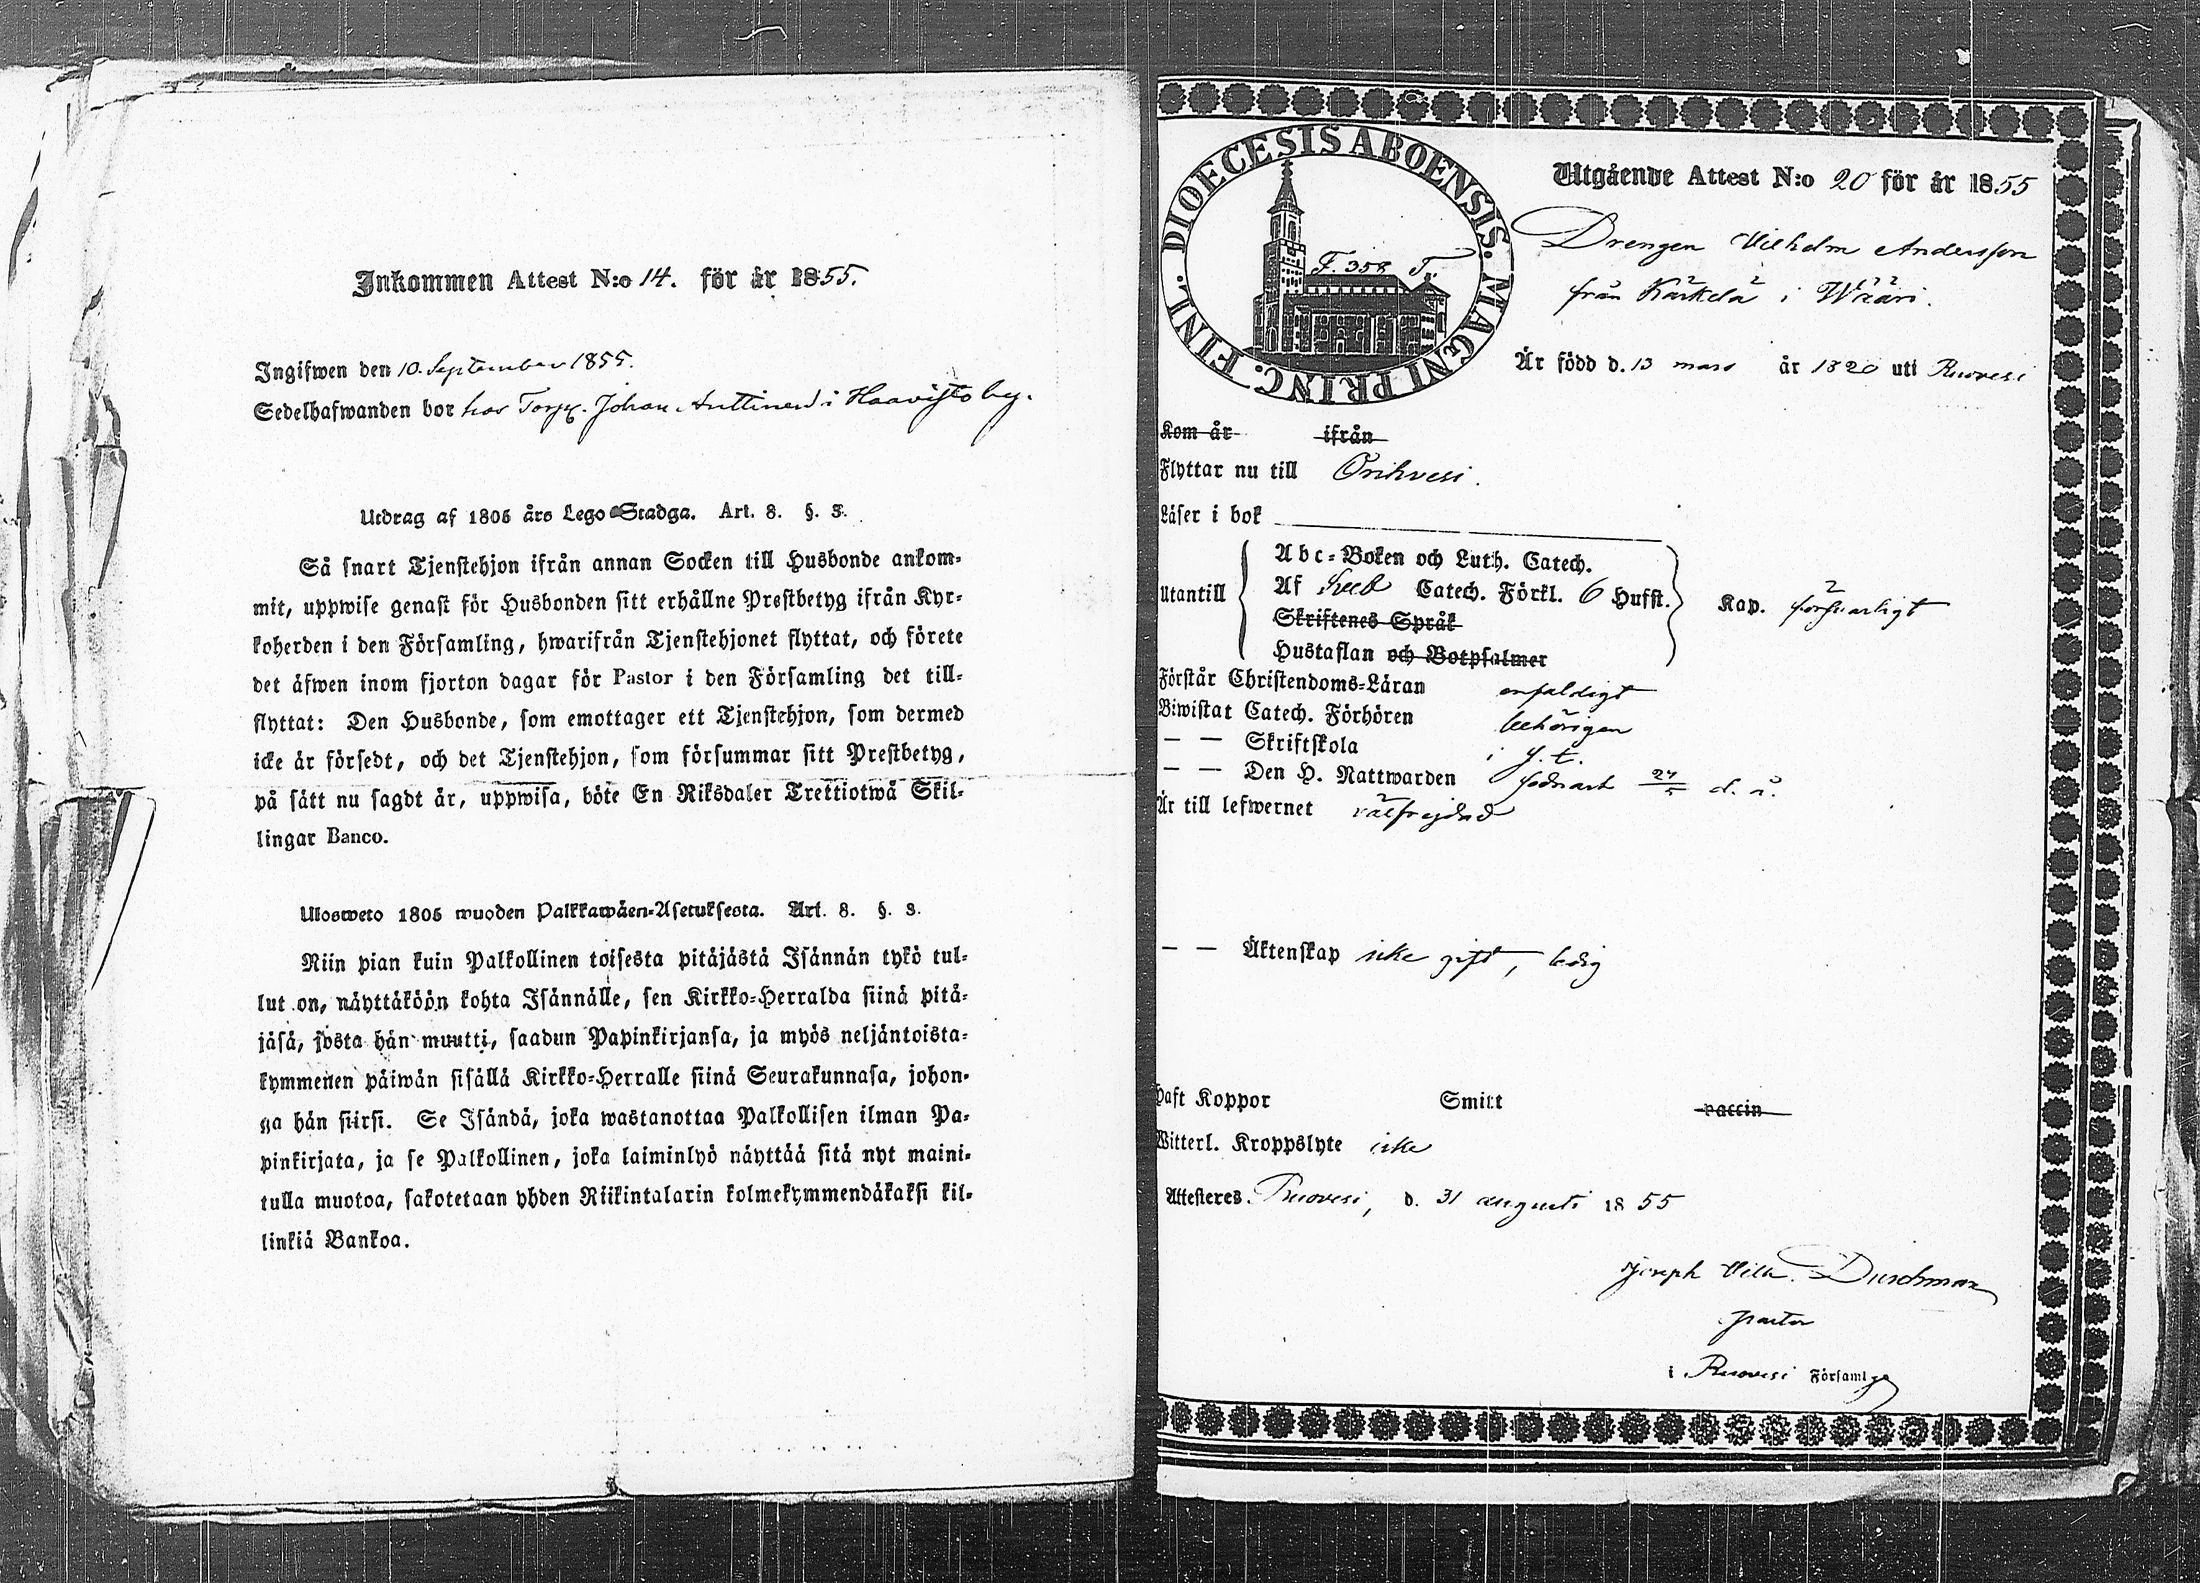 Inkommen Attest N:o 14. för år 1855.
Ingifwen den 10. September 1855.
Sedelhafwanden bor hos Torp. Johan Anttinen i Haavisto by.
Utdrag af 1805 års Lego-Stadga. Art. 8. §. 3.
Så snart Tjenstehjon ifrån annan Socken till Husbonde ankom-
mit, uppwise genast för Husbonden sitt erhållne Prestbetyg ifrån Kyr-
koherden i den Församling, hwarifrån Tjenstehjonet flyttat, och förete
det äfwen inom fjorton dagar för Pastor i den Församling det till-
flyttat: Den Husbonde, som emottager ett Tjenstehjon, som dermed
icke är försedt, och det Tjenstehjon, som försummar sitt Prestbetyg,
på sätt nu sagdt är, uppwisa, böte En Riksdaler Trettiotwå Skil-
lingar Banco.
Ulosweto 1805 wuoden Palkkawäen-Asetuksesta. Art. 8. §. 3.
Niin pian kuin Palkollinen toisesta pitäjästä Isännän tykö tul-
lut on, näyttäköön kohta Isännälle, sen Kirkko-Herralda siinä pitä-
jäsä, josta hän muutti, saadun Papinkirjansa, ja myös neljäntoista-
kymmenen päiwän sisällä Kirkko-Herralle siinä Seurakunnasa, johon-
ga hän siirsi. Se Isändä, joka wastanottaa Palkollisen ilman Pa-
pinkirjata, ja se Palkollinen, joka laiminlyö näyttää sitä nyt maini-
tulla muotoa, sakotetaan yhden Riikintalarin kolmekymmendäkaksi kil-
linkiä Bankoa.
DIOECESIS ABOENSIS. MAGNI PRINC. FINL.
F. 358 T.
Utgående Attest N:o 20 för år 1855
Drengen Vilhelm Andersson
från Kärkelä i Wääri.
Är född d. 13 mars år 1820 uti Ruovesi
Kom år ifrån
Flyttar nu till Orihvesi.
Läser i bok
Utantill
Abc-Boken och Luth. Catech.
Af Sveb Catech. Förkl. 6 Hufst. Kap. försvarligt
Skriftenes Språk
Hustaflan och Botpsalmer
Förstår Christendoms-Läran enfaldigt
Biwistat Catech. Förhören behörigen
— — Skriftskola i s. t.
— — Den H. Nattwarden sednast 27/5 d. å.
Är till lefwernet välfrejdad
— — Äktenskap icke gift, ledig
Haft Koppor Smitt vaccin
Witterl. Kroppslyte icke
Attesteres Ruovesi, d. 31 augusti 1855
Joseph Vilh. Durchman
pastor
i Ruovesi Församlg